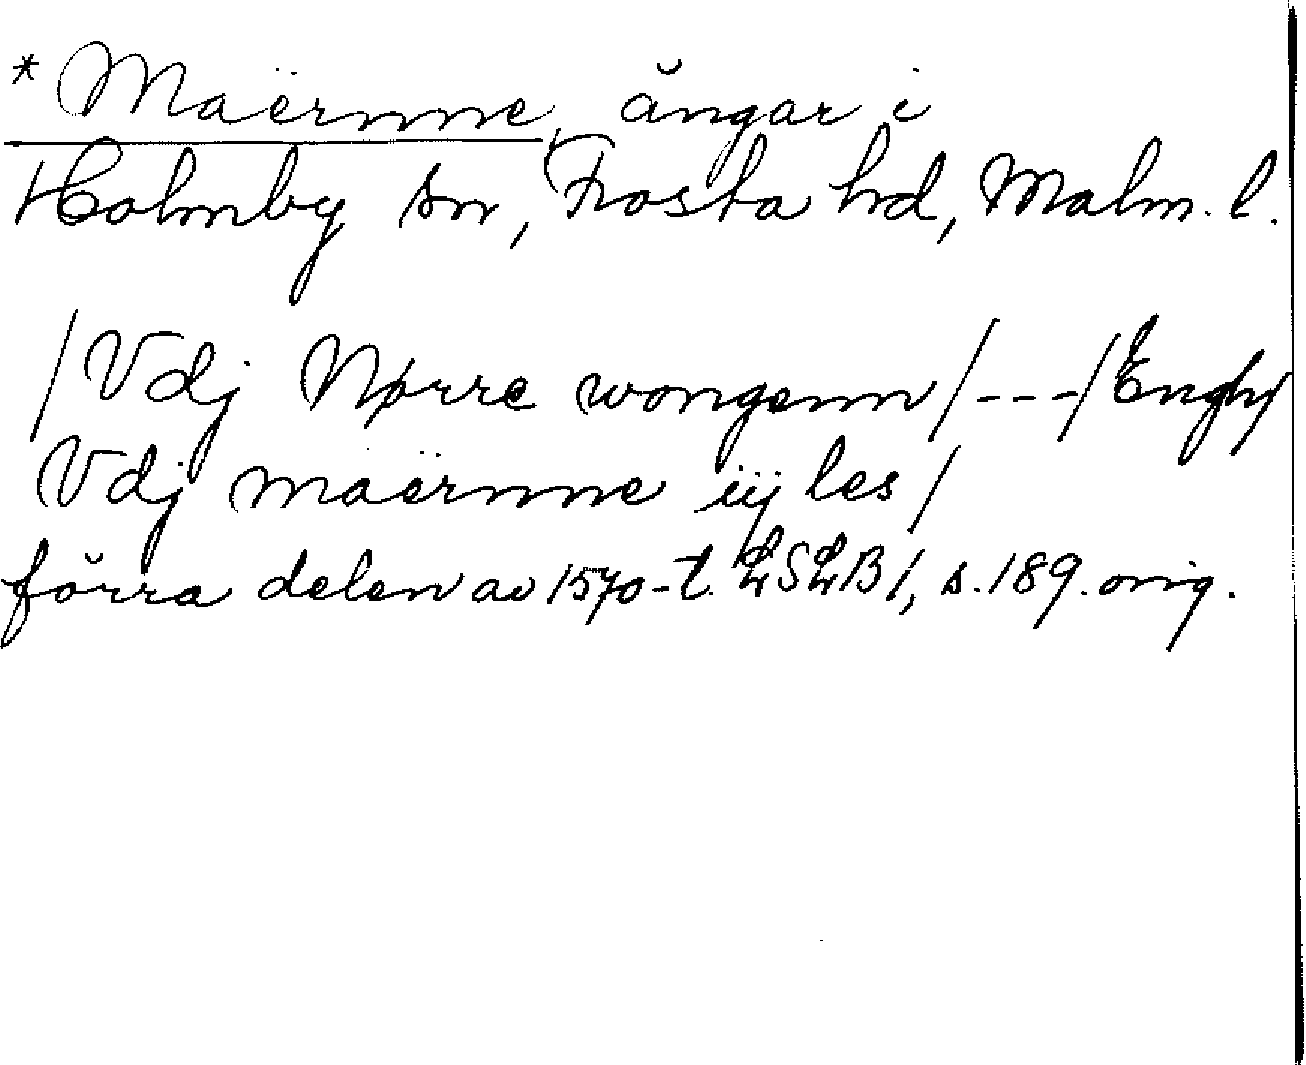 * Maërnne, ängar i
Holmby sn, Frosta hd, Malm. l.
/Vdj Nørre wongenn/---/Engh/
Vdj maërnne iij les/
förra delen av 1570-t. LSLB 1, s. 189. orig.